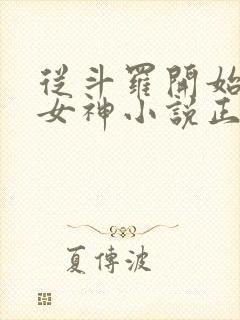 從斗羅開始
女神小説正
夏傳波